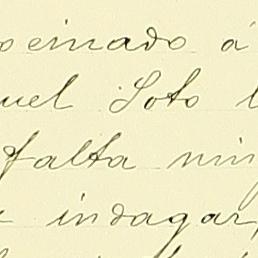 oeinado á
uel Soto l
falta nin
indagar,